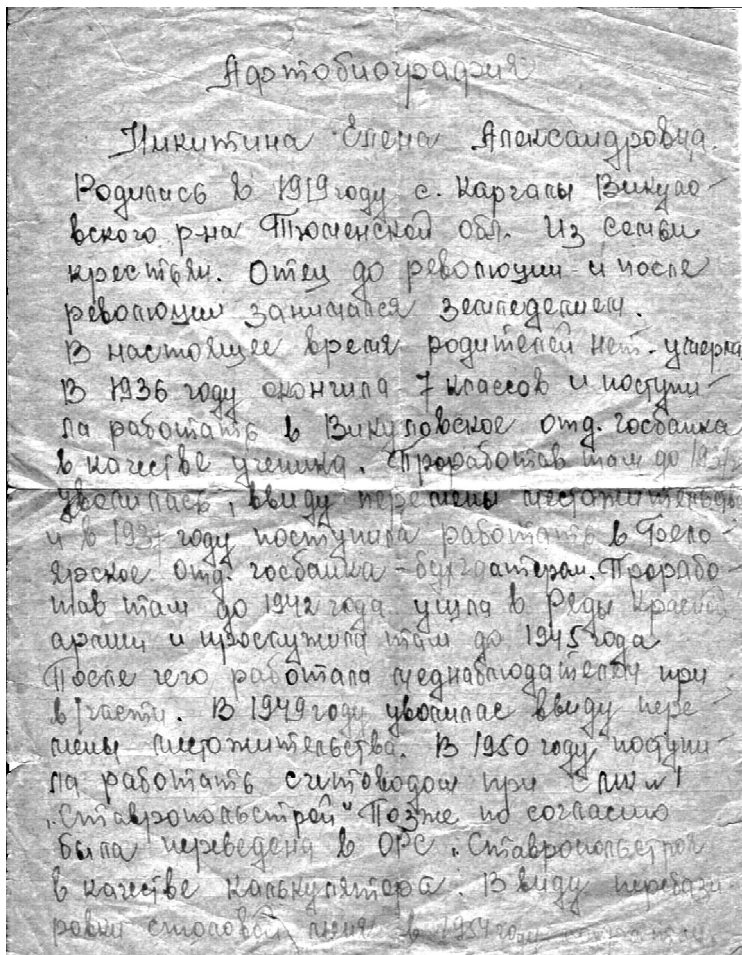 Афтобиография
Никитина Елена Александровна.
Родилась в 1919 году с. Каргалы Викуло-
вского р-на Тюменской обл. Из семьи
крестьян. Отец до революции и после
революции занимался земледелием.
В настоящее время родителей нет - умерли
В 1936 году окончила 7 классов и поступи-
ла работать в Викуловское отд. госбанка
в качестве ученика. Проработав там до 1937
уволилась, ввиду перемены местожительства
и в 1937 году поступила работать в Бело-
ярское отд. госбанка - бухгаатером. Прорабо-
тав там до 1942 года ушла в Ряды Красной
армии и прослужила там до 1945 года
После чего работала меднаблюдателем при
в/части. В 1949 году уволилас ввиду пере-
мены местожительства. В 1950 году поступи-
ла работать счетоводом при
"Ставропольстрой" Позже по согласию
была переведена в ОРС "Ставропольстроя
в качестве калькулятера. В виду перебази-
ровки столовой меня в 1954 году